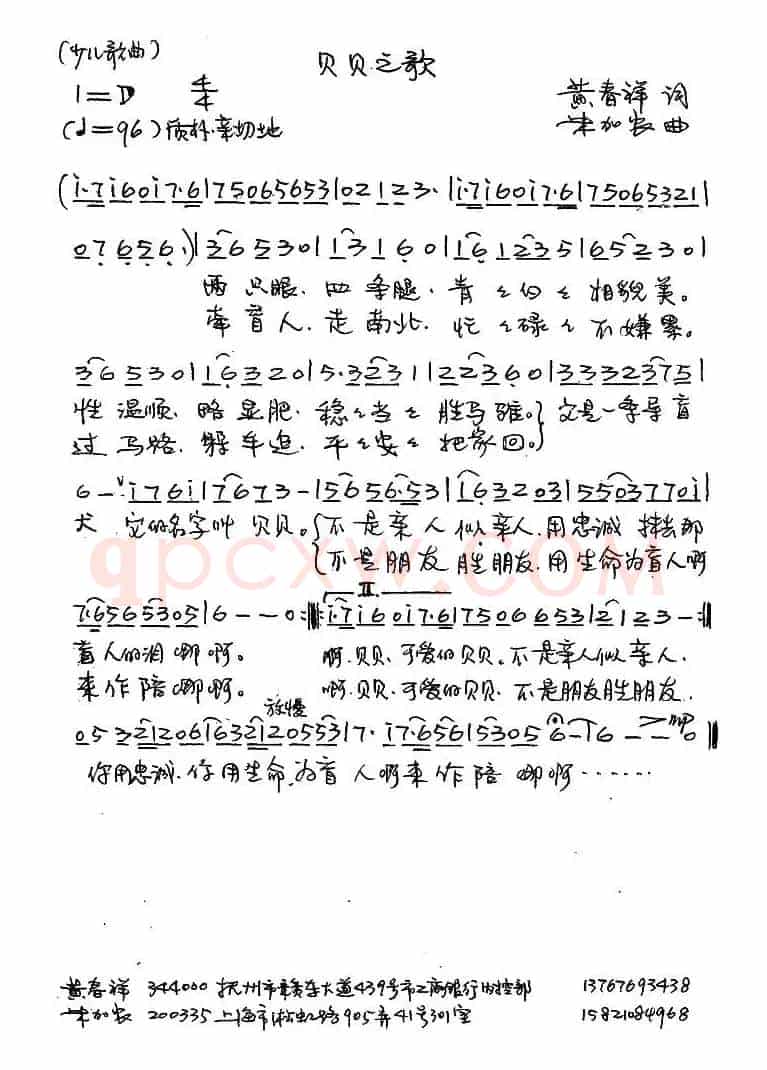 (少儿歌曲)
贝贝之歌
1=D 4/4
黄春祥 词
(♩=96)质朴亲切地
朱加农 曲
(i·7i60i7·6|75065653|02123·|i·7i60i7·6|75065321|
07656·)|36530|13160|161235|65230|
两只眼、四条腿、青々白々相貌美。
牵盲人、走南北、忙々碌々不嫌累。
36530|16320|5·3231|22360|3332375|
性温顺、略显肥、稳々当々胜马骓。}它是一条导盲
过马路、躲车追、平々安々把家回。}
6-ˇi76i|7673-|565653|163203|5503770i|
犬 它的名字叫贝贝。{不是亲人似亲人.用忠诚 擦去那
{不是朋友胜朋友.用生命为盲人啊
7·6565305|6--0:‖i·7i60i7·6|75066531|2123-:‖
II.
盲人的泪哪啊。 啊.贝贝、可爱的贝贝。不是亲人似亲人.
来作陪哪啊。 啊.贝贝、可爱的贝贝、不是朋友胜朋友.
放慢
053212061632120553|7·i7·6561530566--0‖
mp
你用忠诚.你用生命,为盲人啊来作陪哪啊······
qpcxw.com
黄春祥 344000 抚州市赣东大道439号市工商银行内控部 13767693438
朱加农 200335上海市淞虹路905弄41号301室 15821084968